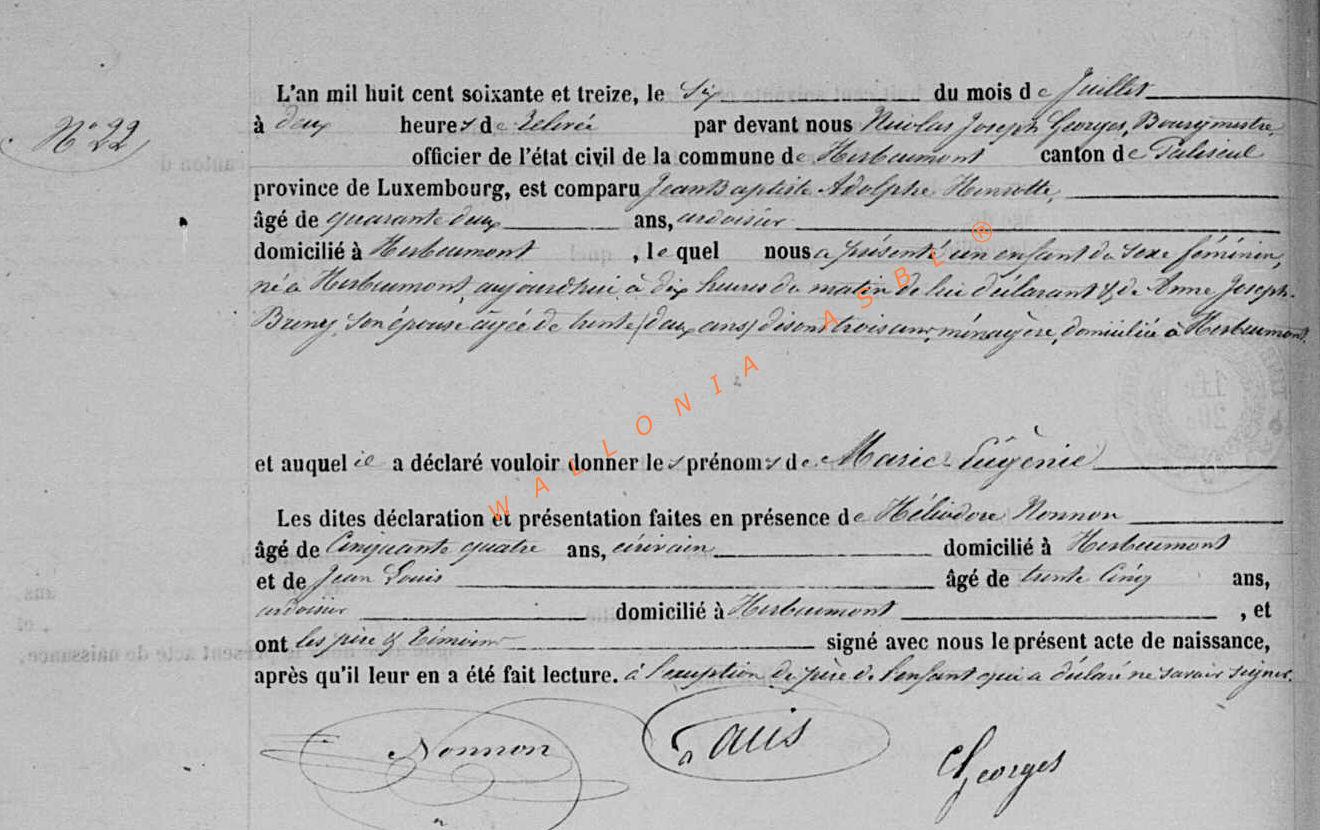 L'an mil huit cent soixante et treize, le six du mois de Juillet
N° 22
à deux heures de relevée par devant nous Nicolas Joseph Georges, Bourgmestre
officier de l'état civil de la commune de Herbeumont canton de Paliseul
province de Luxembourg, est comparu Jean Baptiste Adolphe Henrotte,
âgé de quarante deux ans, ardoisier
domicilié à Herbeumont, lequel nous a présenté un enfant du sexe féminin,
né à Herbeumont, aujourd'hui à dix heures du matin de lui déclarant & de Anne Joseph
Bruny, son épouse âgée de trente (deux ans) disons trois ans, ménagère, domiciliée à Herbeumont.
et auquel il a déclaré vouloir donner les prénoms de Marie Eugénie
Les dites déclaration et présentation faites en présence de Héliodore Nonnon
âgé de Cinquante quatre ans, écrivain domicilié à Herbeumont
et de Jean Louis âgé de trente Cinq ans,
ardoisier domicilié à Herbeumont, et
ont les père & témoins signé avec nous le présent acte de naissance,
après qu'il leur en a été fait lecture. à l'exception du père de l'enfant qui a déclaré ne savoir signer.
Nonnon Georges
WALLONIA ASBL ®